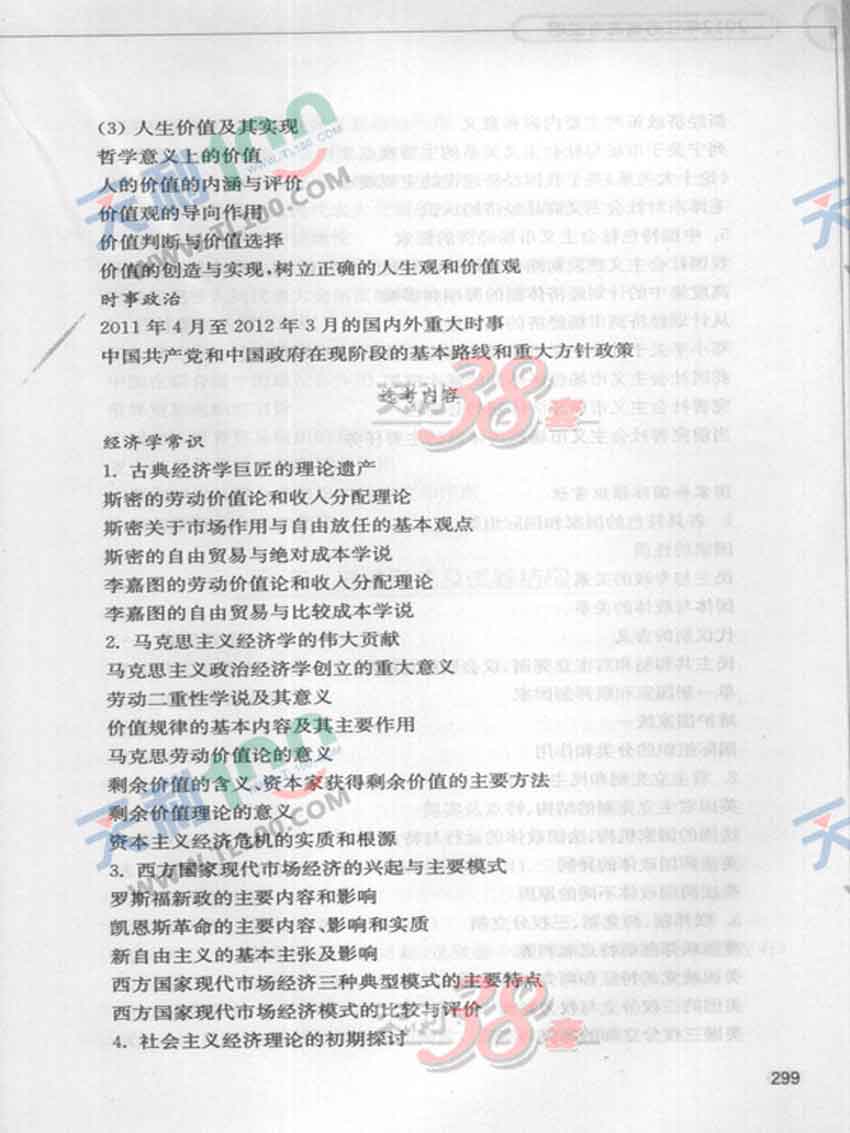 (3) 人生价值及其实现
哲学意义上的价值
人的价值的内涵与评价
价值观的导向作用
价值判断与价值选择
价值的创造与实现,树立正确的人生观和价值观
时事政治
2011年4月至2012年3月的国内外重大时事
中国共产党和中国政府在现阶段的基本路线和重大方针政策
选考内容
经济学常识
1. 古典经济学巨匠的理论遗产
斯密的劳动价值论和收入分配理论
斯密关于市场作用与自由放任的基本观点
斯密的自由贸易与绝对成本学说
李嘉图的劳动价值论和收入分配理论
李嘉图的自由贸易与比较成本学说
2. 马克思主义经济学的伟大贡献
马克思主义政治经济学创立的重大意义
劳动二重性学说及其意义
价值规律的基本内容及其主要作用
马克思劳动价值论的意义
剩余价值的含义、资本家获得剩余价值的主要方法
剩余价值理论的意义
资本主义经济危机的实质和根源
3. 西方国家现代市场经济的兴起与主要模式
罗斯福新政的主要内容和影响
凯恩斯革命的主要内容、影响和实质
新自由主义的基本主张及影响
西方国家现代市场经济三种典型模式的主要特点
西方国家现代市场经济模式的比较与评价
4. 社会主义经济理论的初期探讨
299
天利100
WWW.TL100.COM
天利38套
天利100
WWW.TL100.COM
天利38套